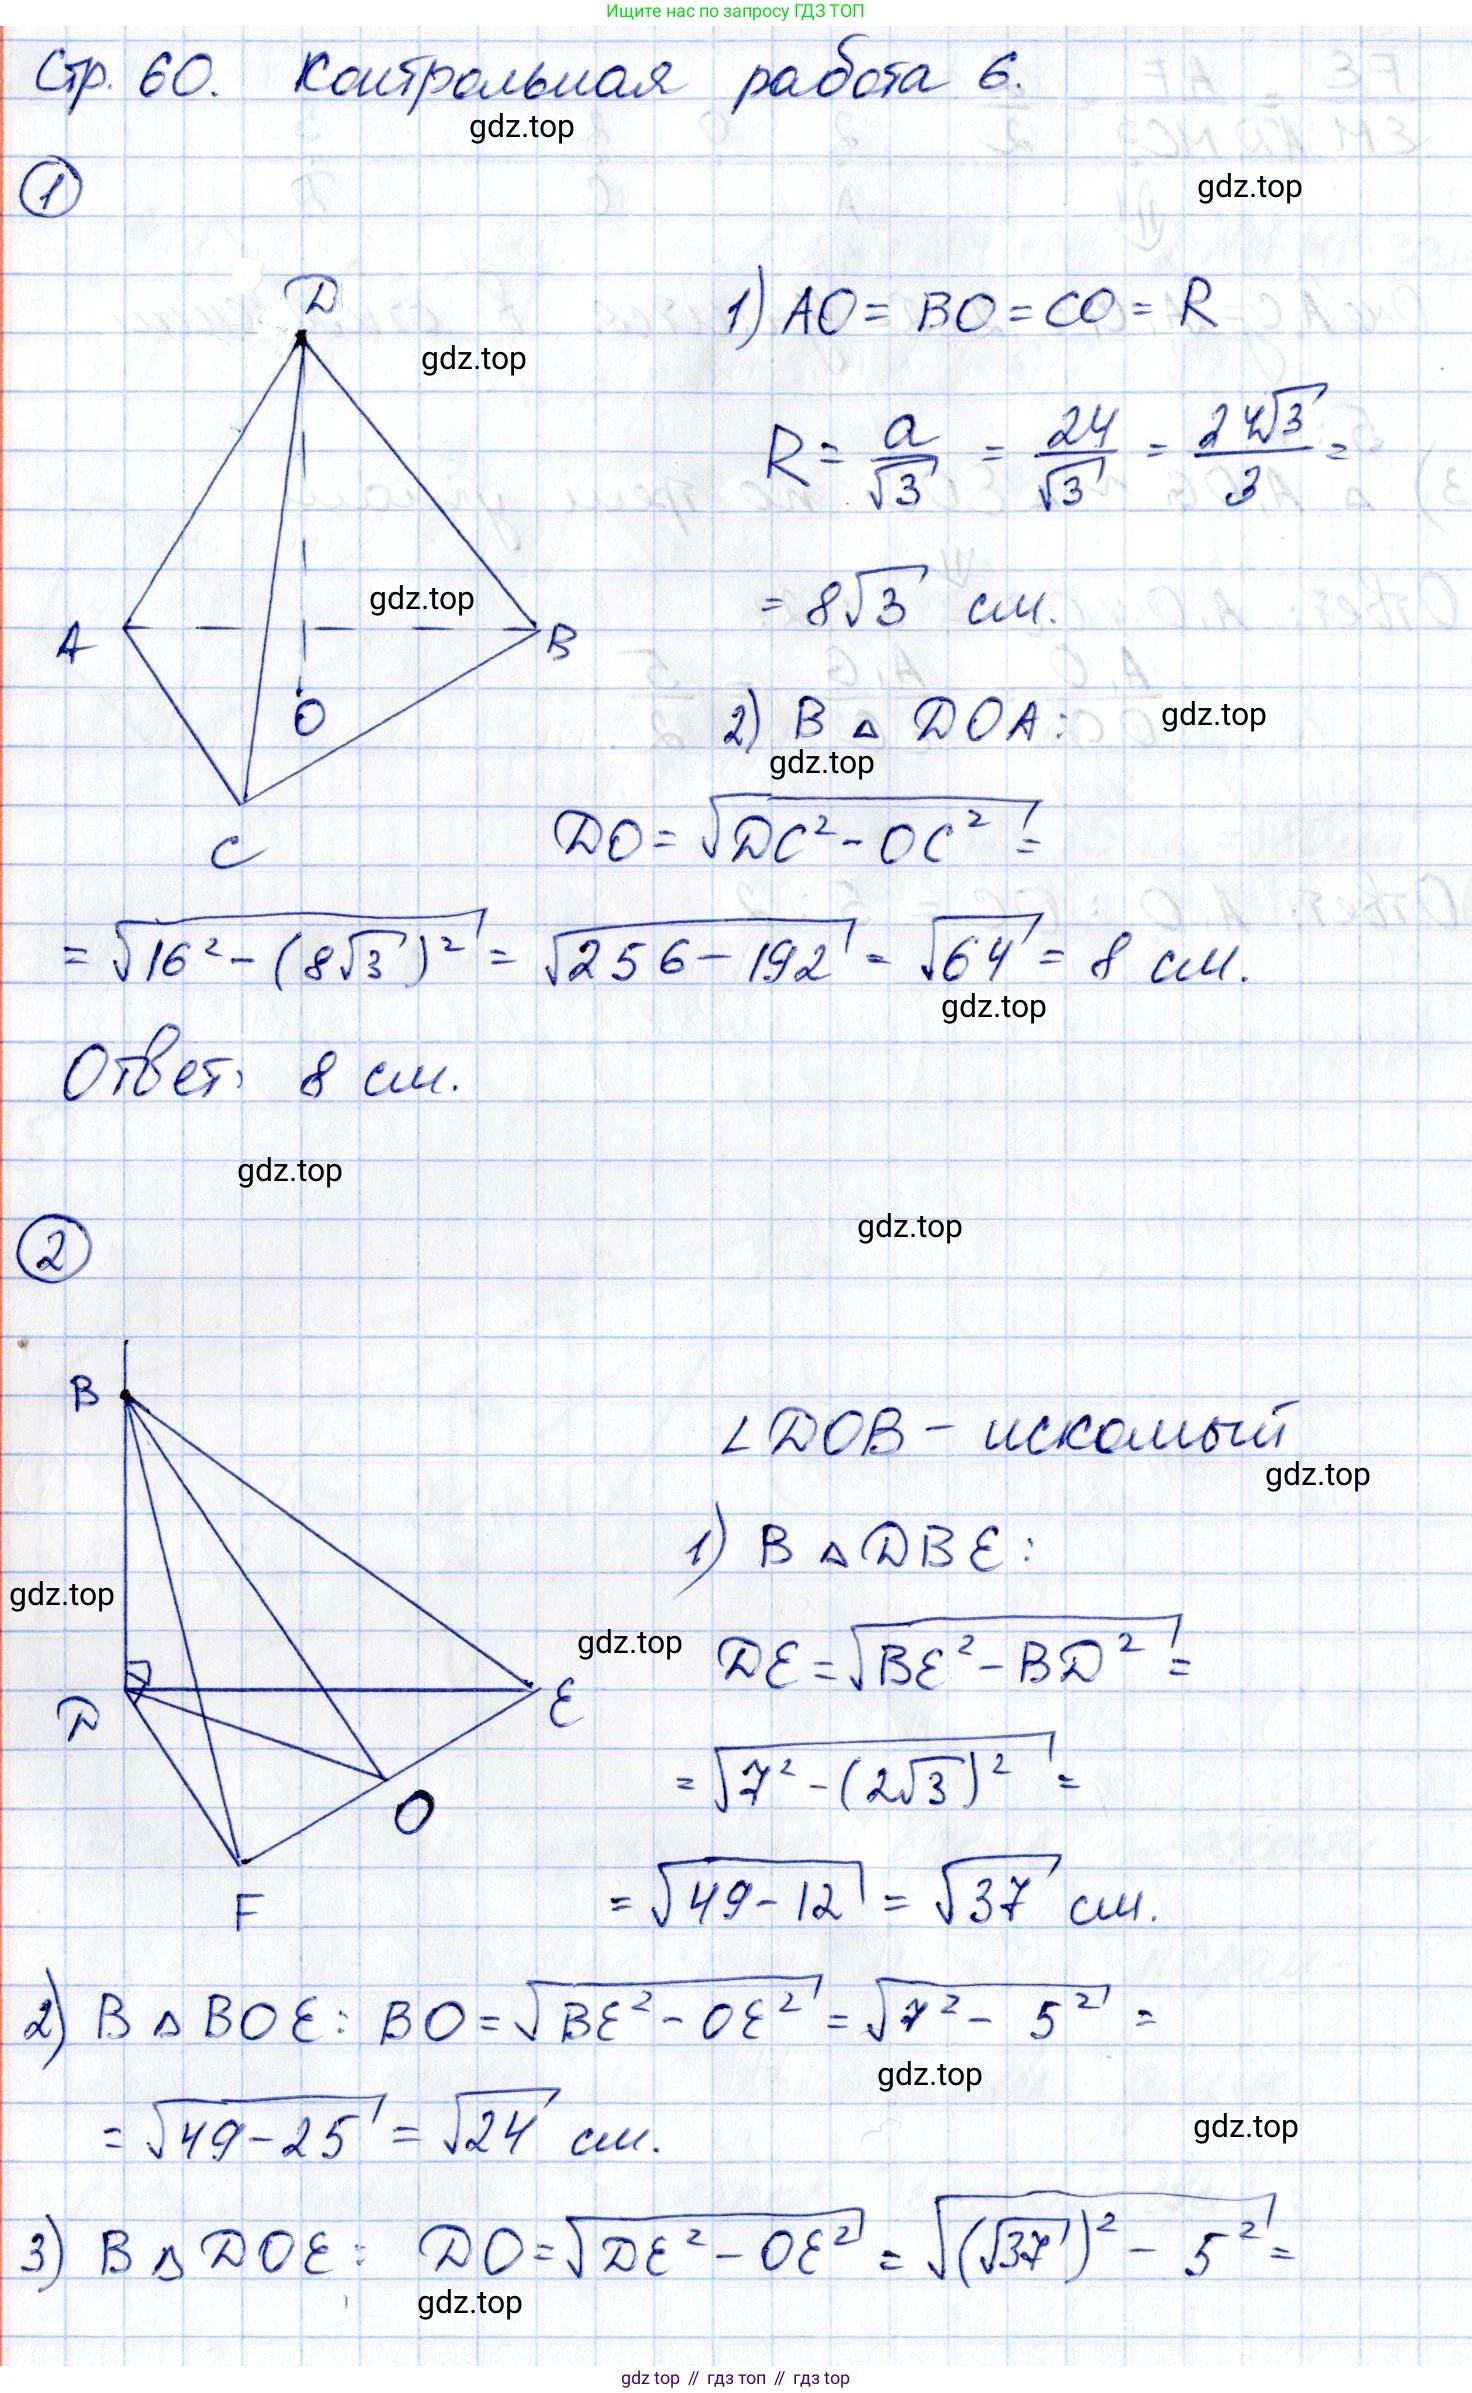 Ищите нас по запросу ГДЗ ТОП
Стр. 60. Контрольная работа 6.
gdz.top
1
gdz.top
D
1) AO = BO = CO = R
gdz.top
R = a/√3 = 24/√3 = 24√3/3 =
gdz.top
= 8√3 см.
A
B
O
2) В △ DOA:
gdz.top
gdz.top
C
DO = √(DC² - OC²) =
= √(16² - (8√3)²) = √(256 - 192) = √64 = 8 см.
gdz.top
Ответ: 8 см.
gdz.top
gdz.top
2
B
∠DOB - искомый
gdz.top
1) В △ DBE:
gdz.top
gdz.top
DE = √(BE² - BD²) =
D
E
= √(7² - (2√3)²) =
O
F
= √(49 - 12) = √37 см.
2) В △ BOE: BO = √(BE² - OE²) = √(7² - 5²) =
gdz.top
= √(49 - 25) = √24 см.
gdz.top
3) В △ DOE: DO = √(DE² - OE²) = √((√37)² - 5²) =
gdz.top
gdz top // гдз топ // гдз top